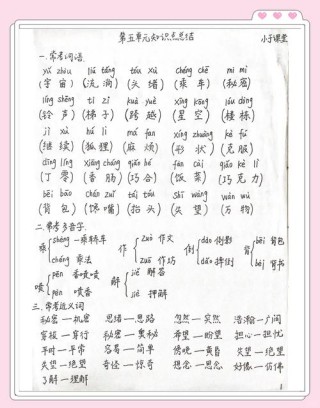 第五单元知识点总结 小于课堂
一.常考词语.
yǔ zhòu liú tǎng tóu xù chéng chē mì mì
(宇宙) (流淌) (头绪) (乘车) (秘密)
líng shēng tī zi kuà yuè xīng kōng lóu dòng
(铃声) (梯子) (跨越) (星空) (楼栋)
jì xù hú li má fan xíng zhuàng kè fú
(继续) (狐狸) (麻烦) (形状) (克服)
dīng líng xiāng cháng qiǎo hé fàn cài qiǎo kè lì
(丁零) (香肠) (巧合) (饭菜) (巧克力)
bēi bāo chán zuǐ tái tóu shī wàng wàn wù
(背包) (馋嘴) (抬头) (失望) (万物)
二.常考多音字.
乘 shèng—乘轿车 作 zuò 作文 倒 dào 倒影 背 bēi 背包
chéng 乘法 zuō 作坊 dǎo 摔倒 bèi 背书
喷 pēn 香喷喷 解 jiě 解答
pèn 喷香 jiè 押解
三.常考近义词
秘密—机密 思绪—思路 忽然—突然 浩瀚—广阔
穿梭—穿行 秘密—奥秘 希望—盼望 担心—担忧
平时—平常 容易—简单 傍晚—黄昏 失望—绝望
失望—绝望 奇怪—惊奇 想念—思念 好像—仿佛
了解—理解